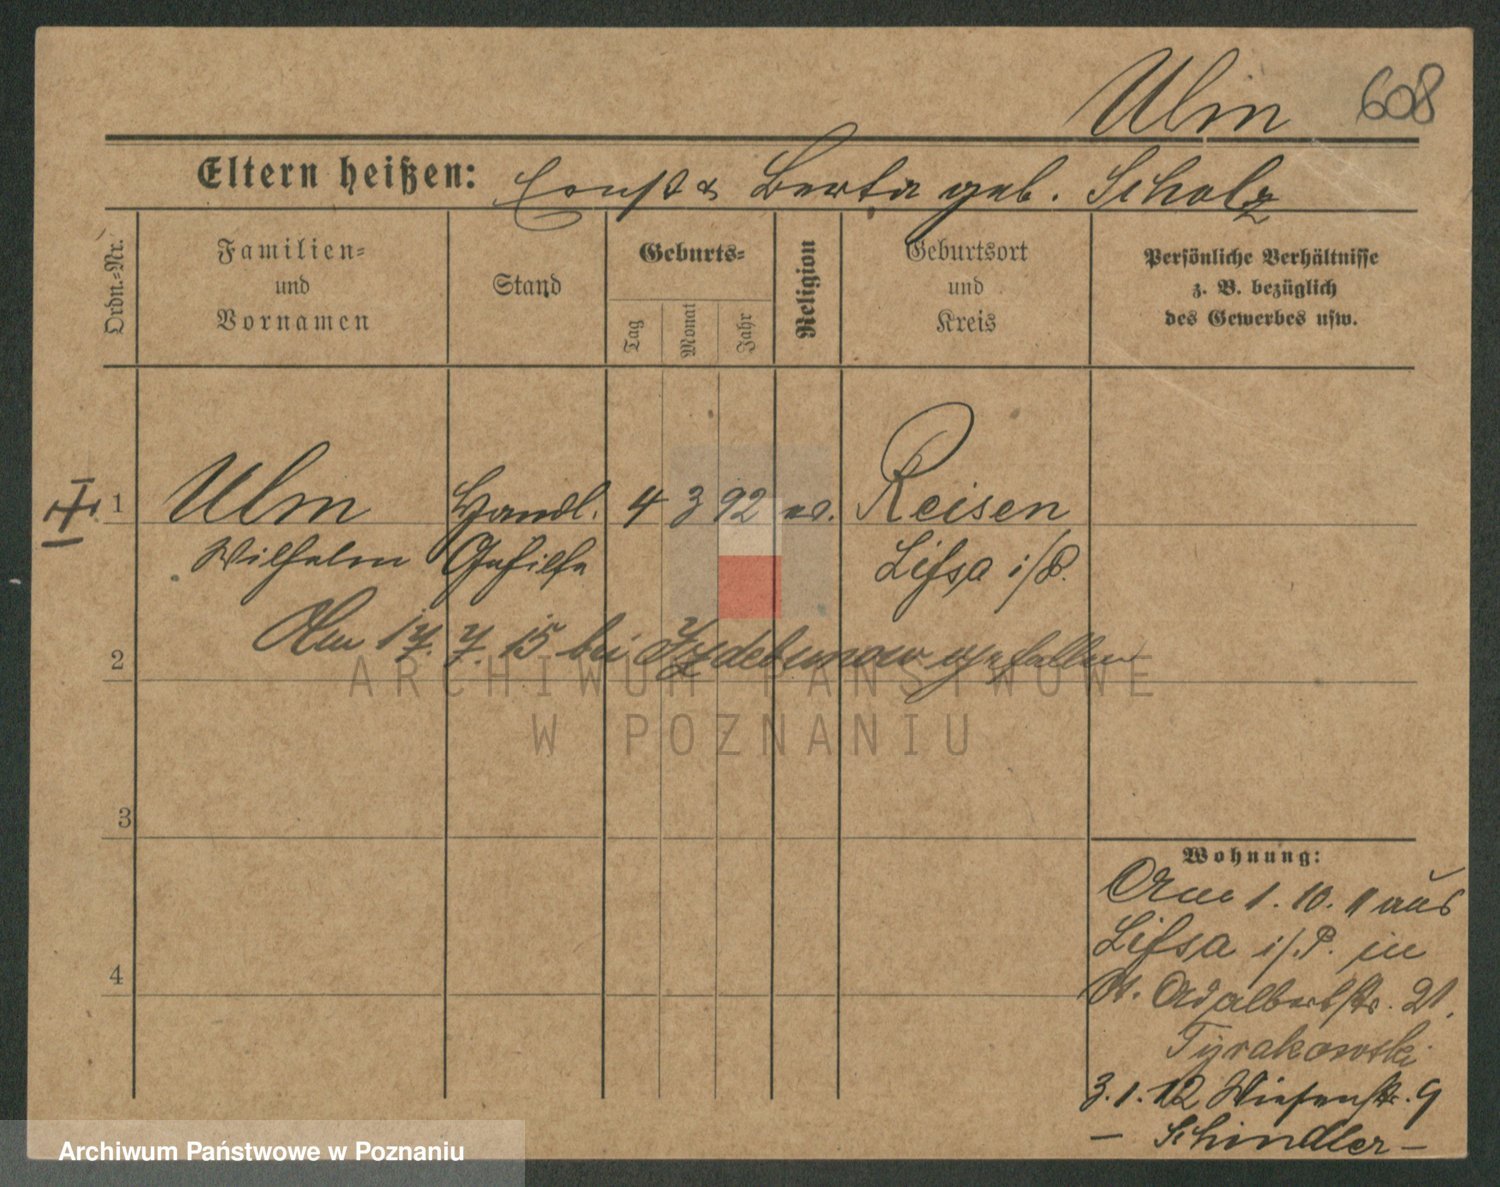 Ulm 608
Eltern heißen: Ernst & Berta geb. Scholz
Ordn.-Nr.
Familien-
und
Vornamen
Stand
Geburts-
Tag
Monat
Jahr
Religion
Geburtsort
und
Kreis
Persönliche Verhältnisse
z. B. bezüglich
des Gewerbes usw.
1 Ulm Handl. 4 3 92 ev. Reisen
Wilhelm Gehilfe Lissa i/P.
Am 17. 7. 15 bei gefallen
2
ARCHIWUM PAŃSTWOWE
W POZNANIU
3
4
Wohnung:
Am 1. 10. 11 aus
Lissa i/P. in
St. Adalbertstr. 21.
Tyrakowski
3. 1. 12 Wiesenstr. 9
– Schindler –
Archiwum Państwowe w Poznaniu